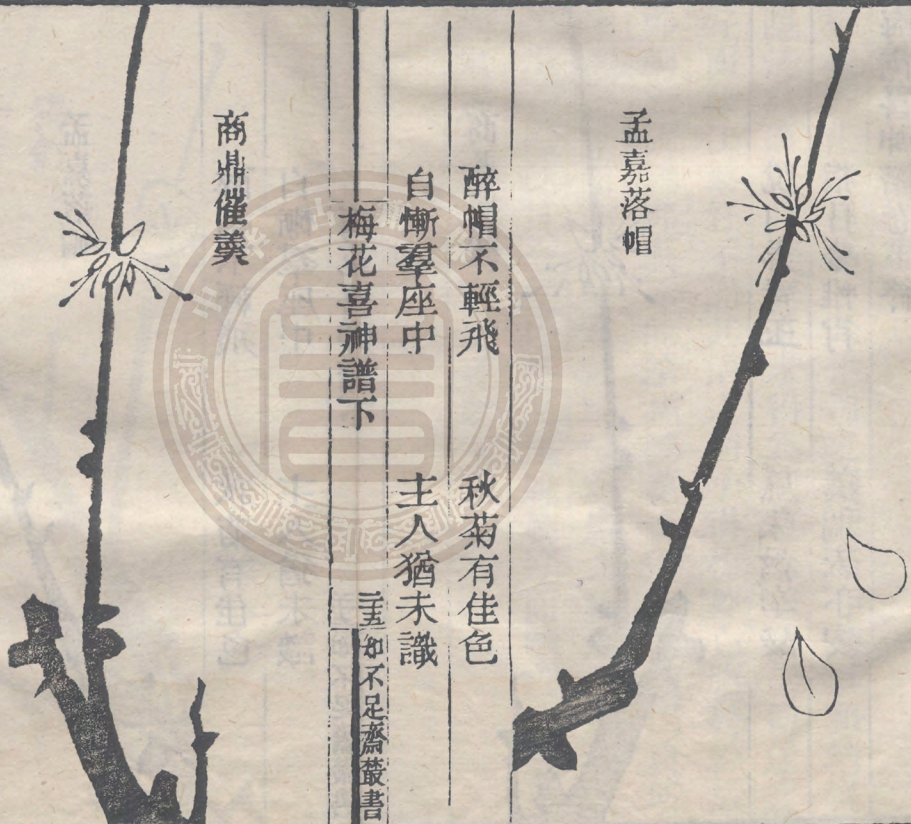 孟嘉落帽
醉帽不輕飛 秋菊有佳色
自慚羣座中 主人猶未識
梅花喜神譜下
知不足齋叢書
商鼎催羹